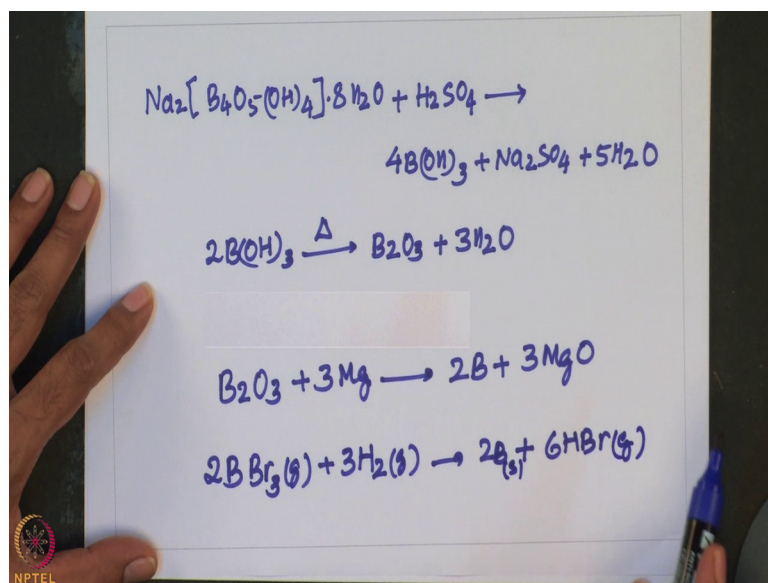 Na₂[B₄O₅(OH)₄]·8H₂O + H₂SO₄ ⟶
4B(OH)₃ + Na₂SO₄ + 5H₂O
2B(OH)₃ —Δ→ B₂O₃ + 3H₂O
B₂O₃ + 3Mg ⟶ 2B + 3MgO
2BBr₃(g) + 3H₂(g) ⟶ 2B(s) + 6HBr(g)
NPTEL